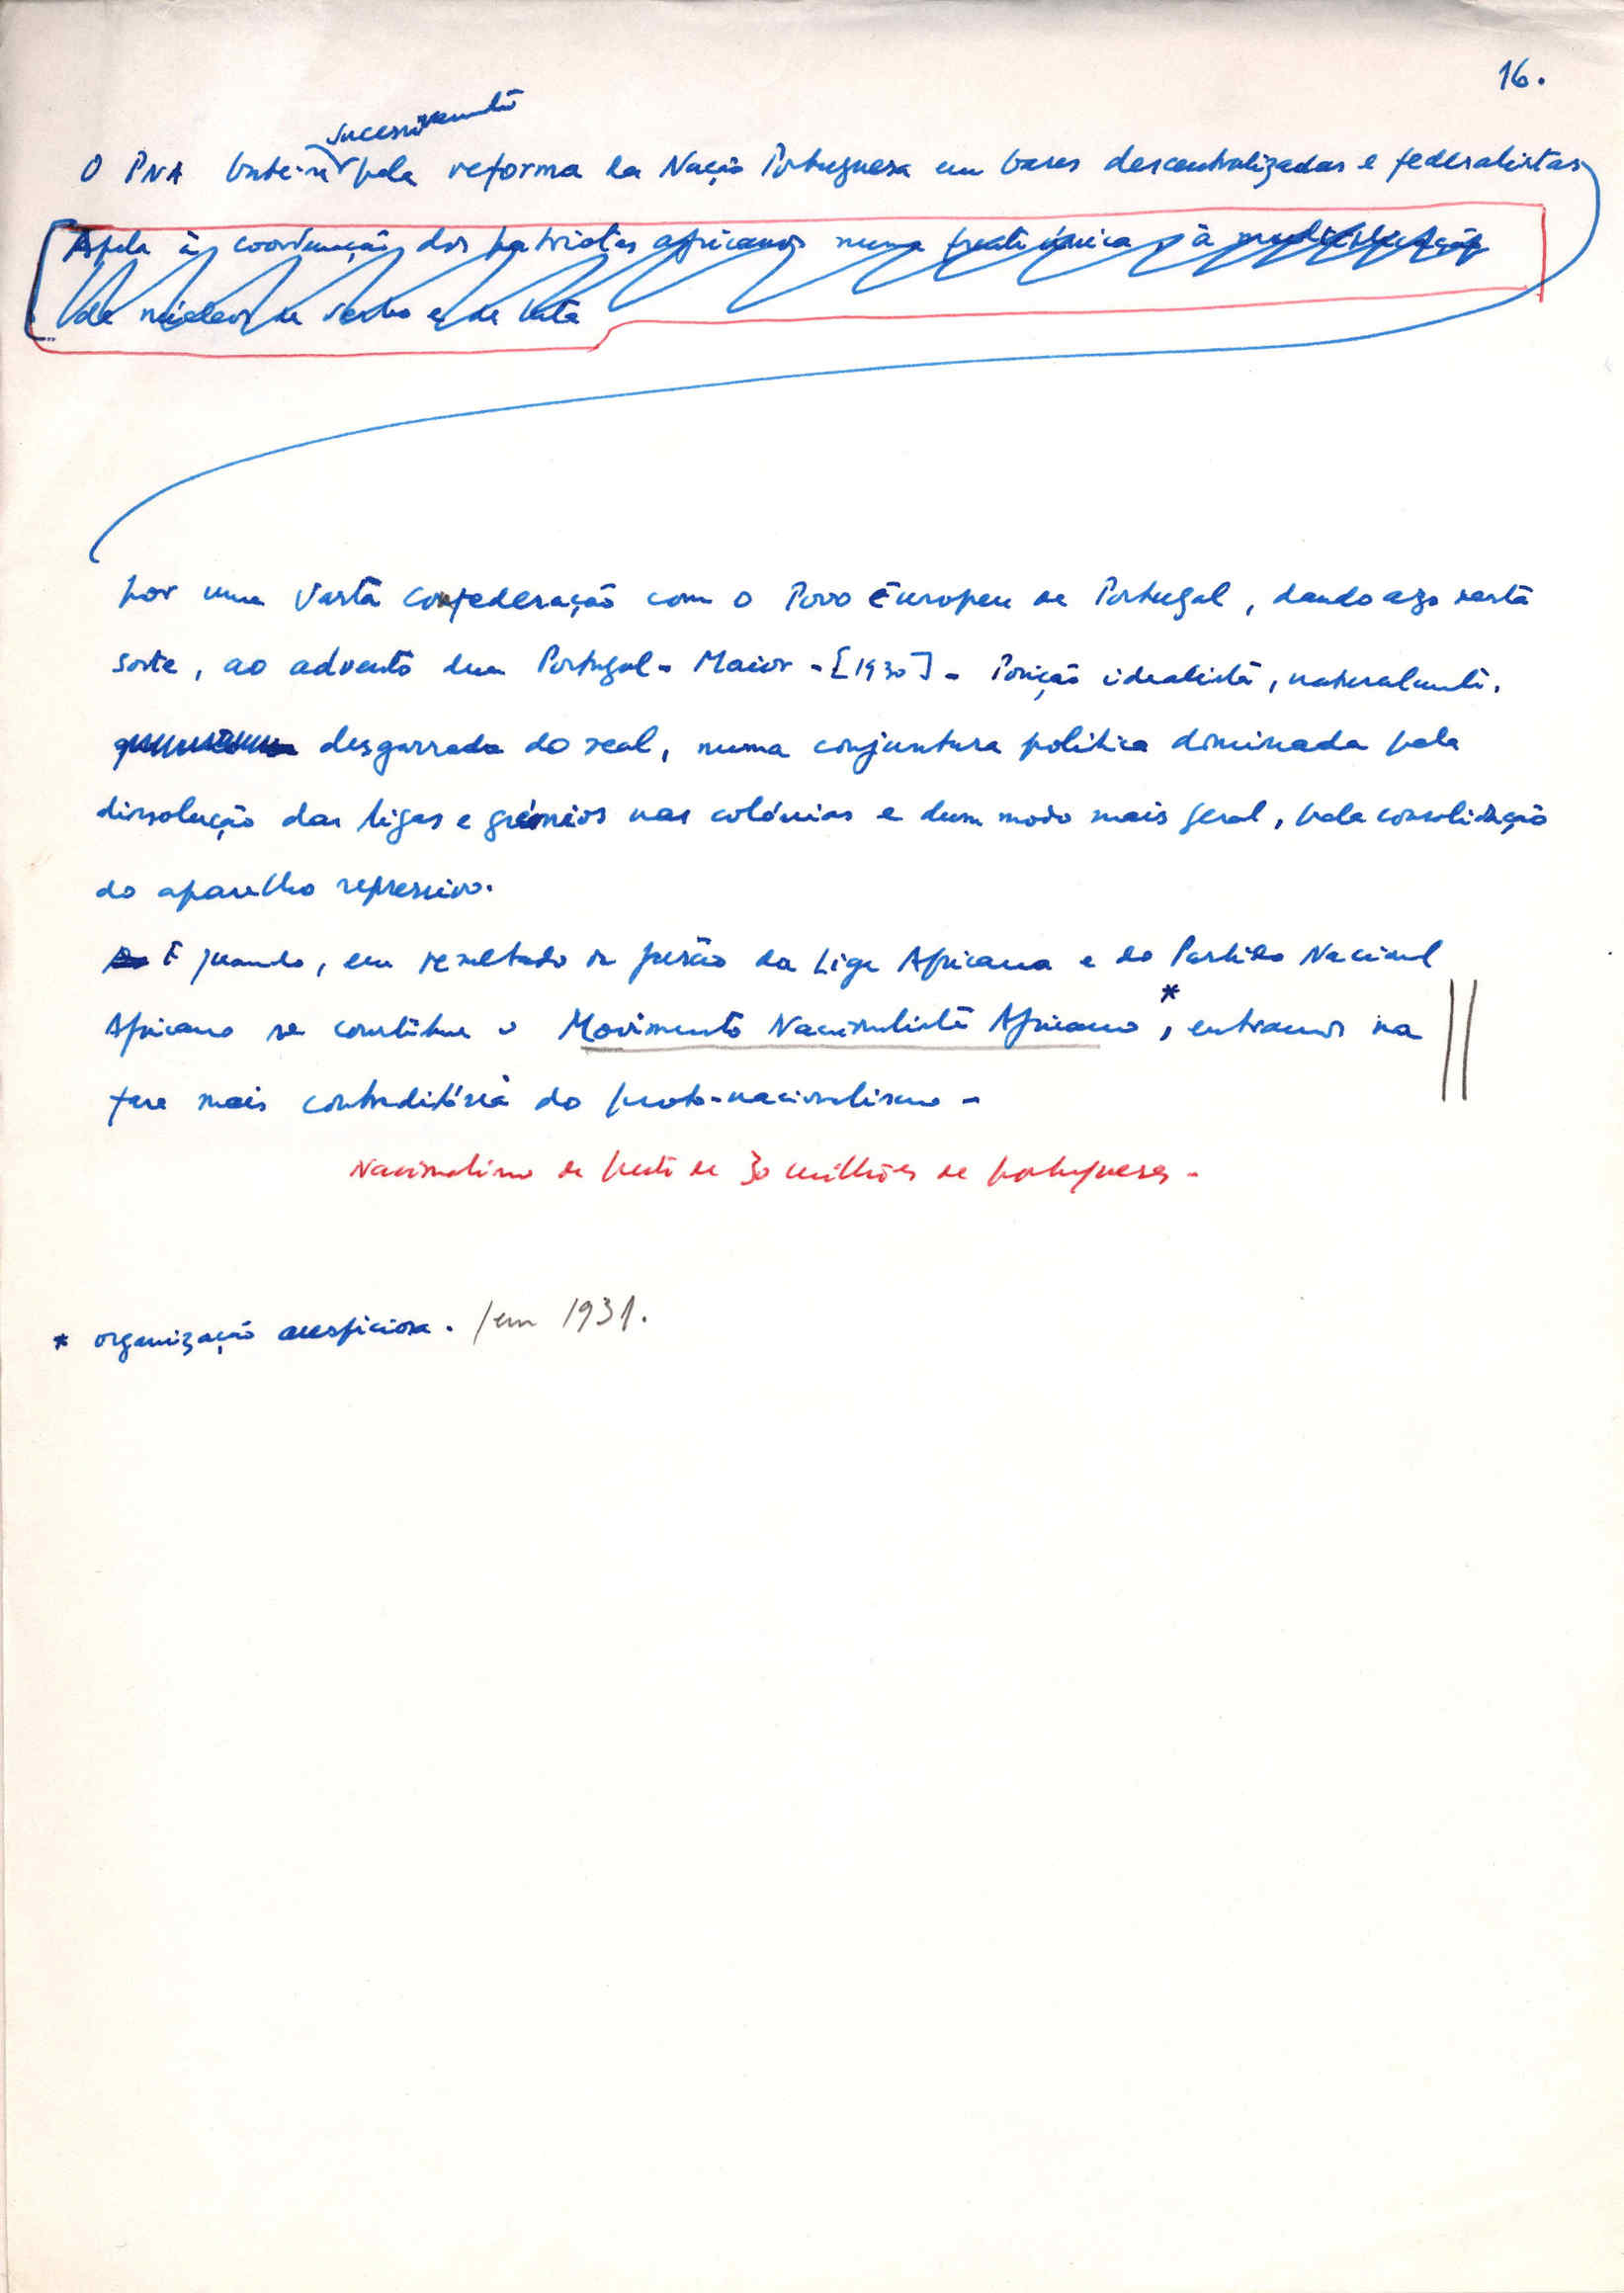 16.
sucessivamente
O PNA bate-se pela reforma da Nação Portuguesa em bases descentralizadas e federalistas
Apela à coordenação dos patriotas africanos numa frente única, à
de núcleos de e de luta
por uma vasta confederação com o Povo Europeu de Portugal, dando azo desta
sorte, ao advento dum Portugal-Maior - [1930] - Posição idealista, naturalmente,
desgarrada do real, numa conjuntura política dominada pela
dissolução das ligas e grémios nas colónias e dum modo mais geral, pela consolidação
do aparelho repressivo.
E quando, em resultado da fusão da Liga Africana e do Partido Nacional
Africano se constitue o Movimento Nacionalista Africano *, entramos na
fase mais contraditória do proto-nacionalismo -
Nacionalismo de frente de 30 milhões de portugueses -
* organização auspiciosa. / em 1931.